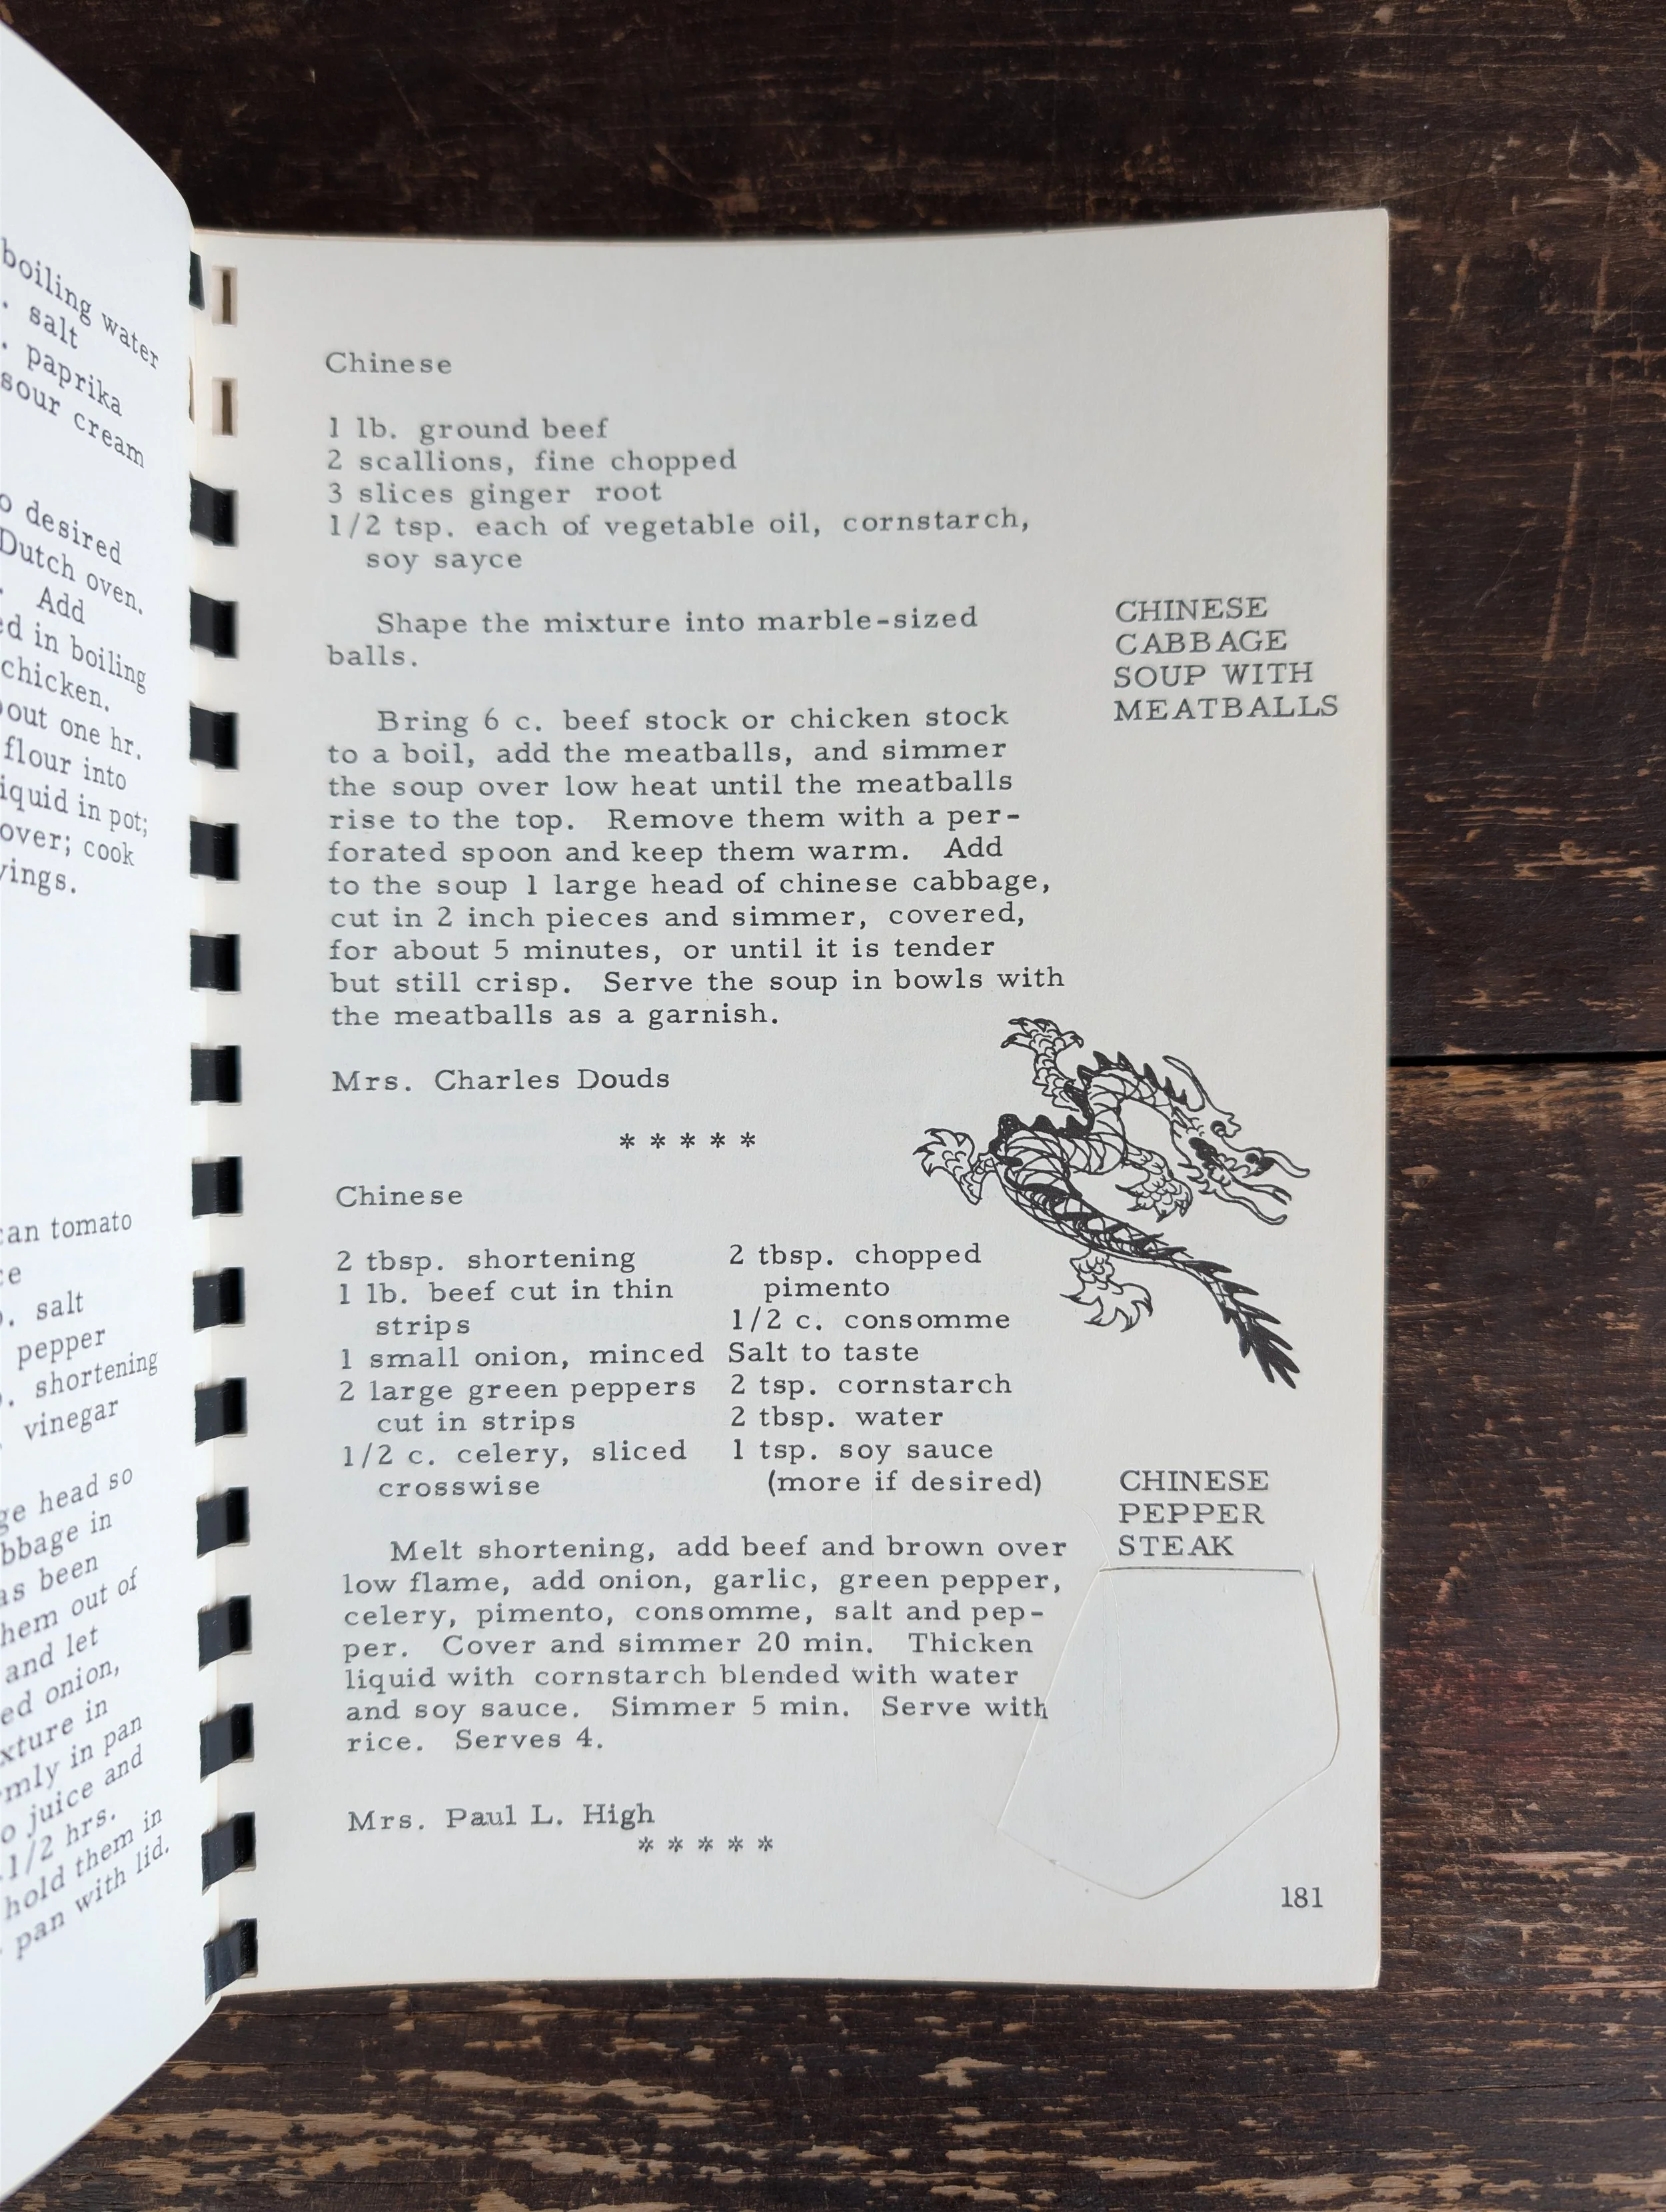 boiling water
. salt
. paprika
sour cream
o desired
Dutch oven.
. Add
ed in boiling
chicken.
out one hr.
flour into
iquid in pot;
over; cook
vings.
can tomato
ce
. salt
pepper
. shortening
vinegar
ge head so
bbage in
as been
hem out of
and let
ed onion,
xture in
rmly in pan
o juice and
1/2 hrs.
hold them in
pan with lid.
Chinese
1 lb. ground beef
2 scallions, fine chopped
3 slices ginger root
1/2 tsp. each of vegetable oil, cornstarch,
soy sayce
Shape the mixture into marble-sized
balls.
CHINESE
CABBAGE
SOUP WITH
MEATBALLS
Bring 6 c. beef stock or chicken stock
to a boil, add the meatballs, and simmer
the soup over low heat until the meatballs
rise to the top. Remove them with a per-
forated spoon and keep them warm. Add
to the soup 1 large head of chinese cabbage,
cut in 2 inch pieces and simmer, covered,
for about 5 minutes, or until it is tender
but still crisp. Serve the soup in bowls with
the meatballs as a garnish.
Mrs. Charles Douds
* * * * *
Chinese
2 tbsp. shortening
1 lb. beef cut in thin
strips
1 small onion, minced
2 large green peppers
cut in strips
1/2 c. celery, sliced
crosswise
2 tbsp. chopped
pimento
1/2 c. consomme
Salt to taste
2 tsp. cornstarch
2 tbsp. water
1 tsp. soy sauce
(more if desired)
CHINESE
PEPPER
STEAK
Melt shortening, add beef and brown over
low flame, add onion, garlic, green pepper,
celery, pimento, consomme, salt and pep-
per. Cover and simmer 20 min. Thicken
liquid with cornstarch blended with water
and soy sauce. Simmer 5 min. Serve with
rice. Serves 4.
Mrs. Paul L. High
* * * * *
181